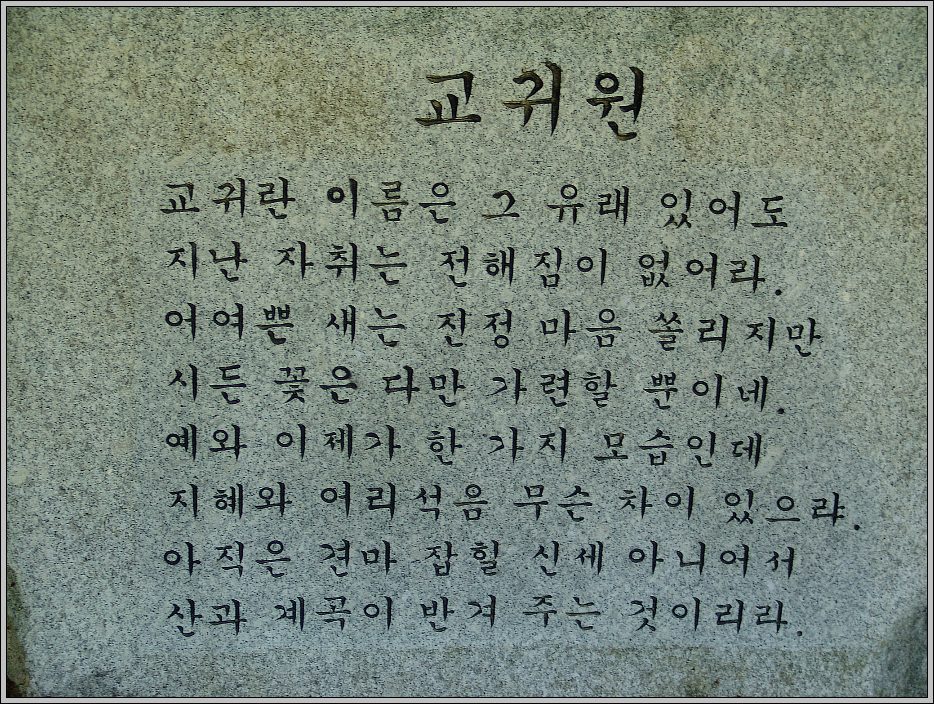 교귀원
교귀란 이름은 그 유래 있어도
지난 자취는 전해짐이 없어라.
어여쁜 새는 진정 마음 쏠리지만
시든 꽃은 다만 가련할 뿐이네.
예와 이제가 한 가지 모습인데
지혜와 어리석음 무슨 차이 있으랴.
아직은 견마 잡힐 신세 아니어서
산과 계곡이 반겨 주는 것이리라.